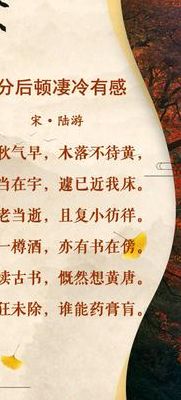 分后顿凄冷有感
宋·陆游
秋气早，木落不待黄，
当在宇，遽已近我床。
老当逝，且复小彷徉。
一樽酒，亦有书在傍。
读古书，慨然想黄唐。
狂未除，谁能药膏肓。